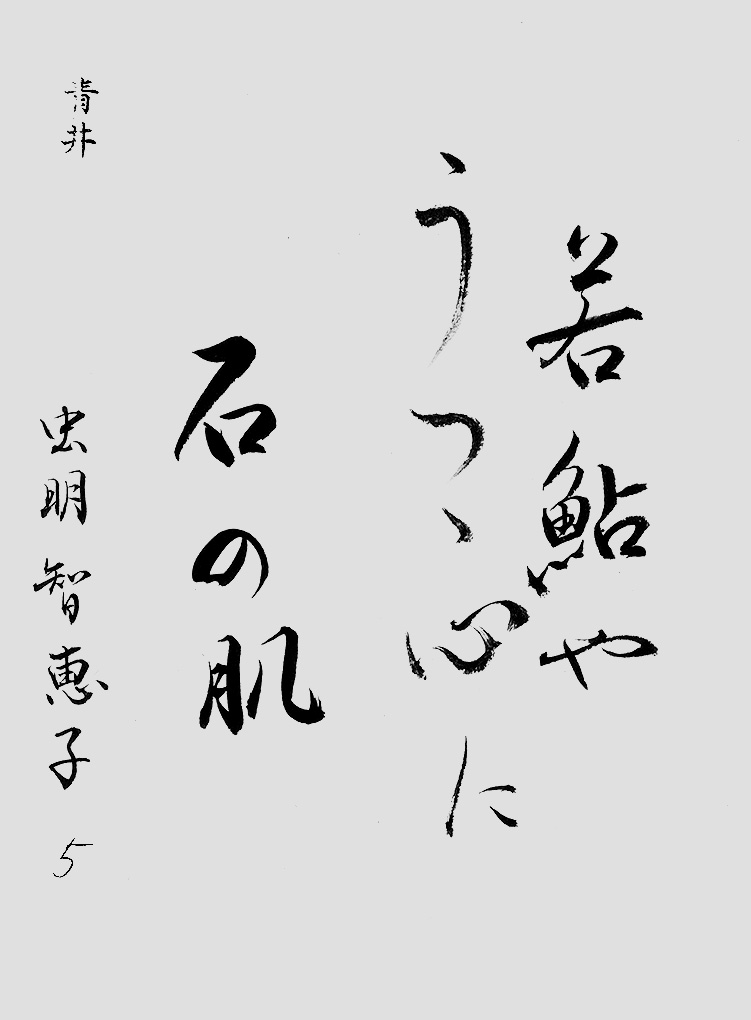 若鮎や
うつゝ心に
石の肌
青井
虫明智恵子 5